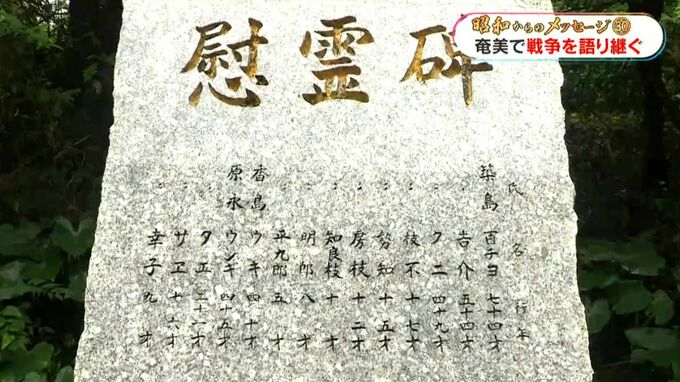 昭和からのメッセージ㉚
奄美で戦争を語り継ぐ
慰霊碑
氏名 行年
築島 百千ヨ 七十四才
〃 吉介 五十四才
〃 クニ 四十九才
〃 十七才
〃 勢知 十五才
〃 房枝 十二才
〃 知良枝 十才
〃 明郎 八才
〃 平九郎 五才
香島 ウキ 四十才
原永 四十五才
〃 タエ 二十一才
〃 サエ 十六才
〃 幸子 九才